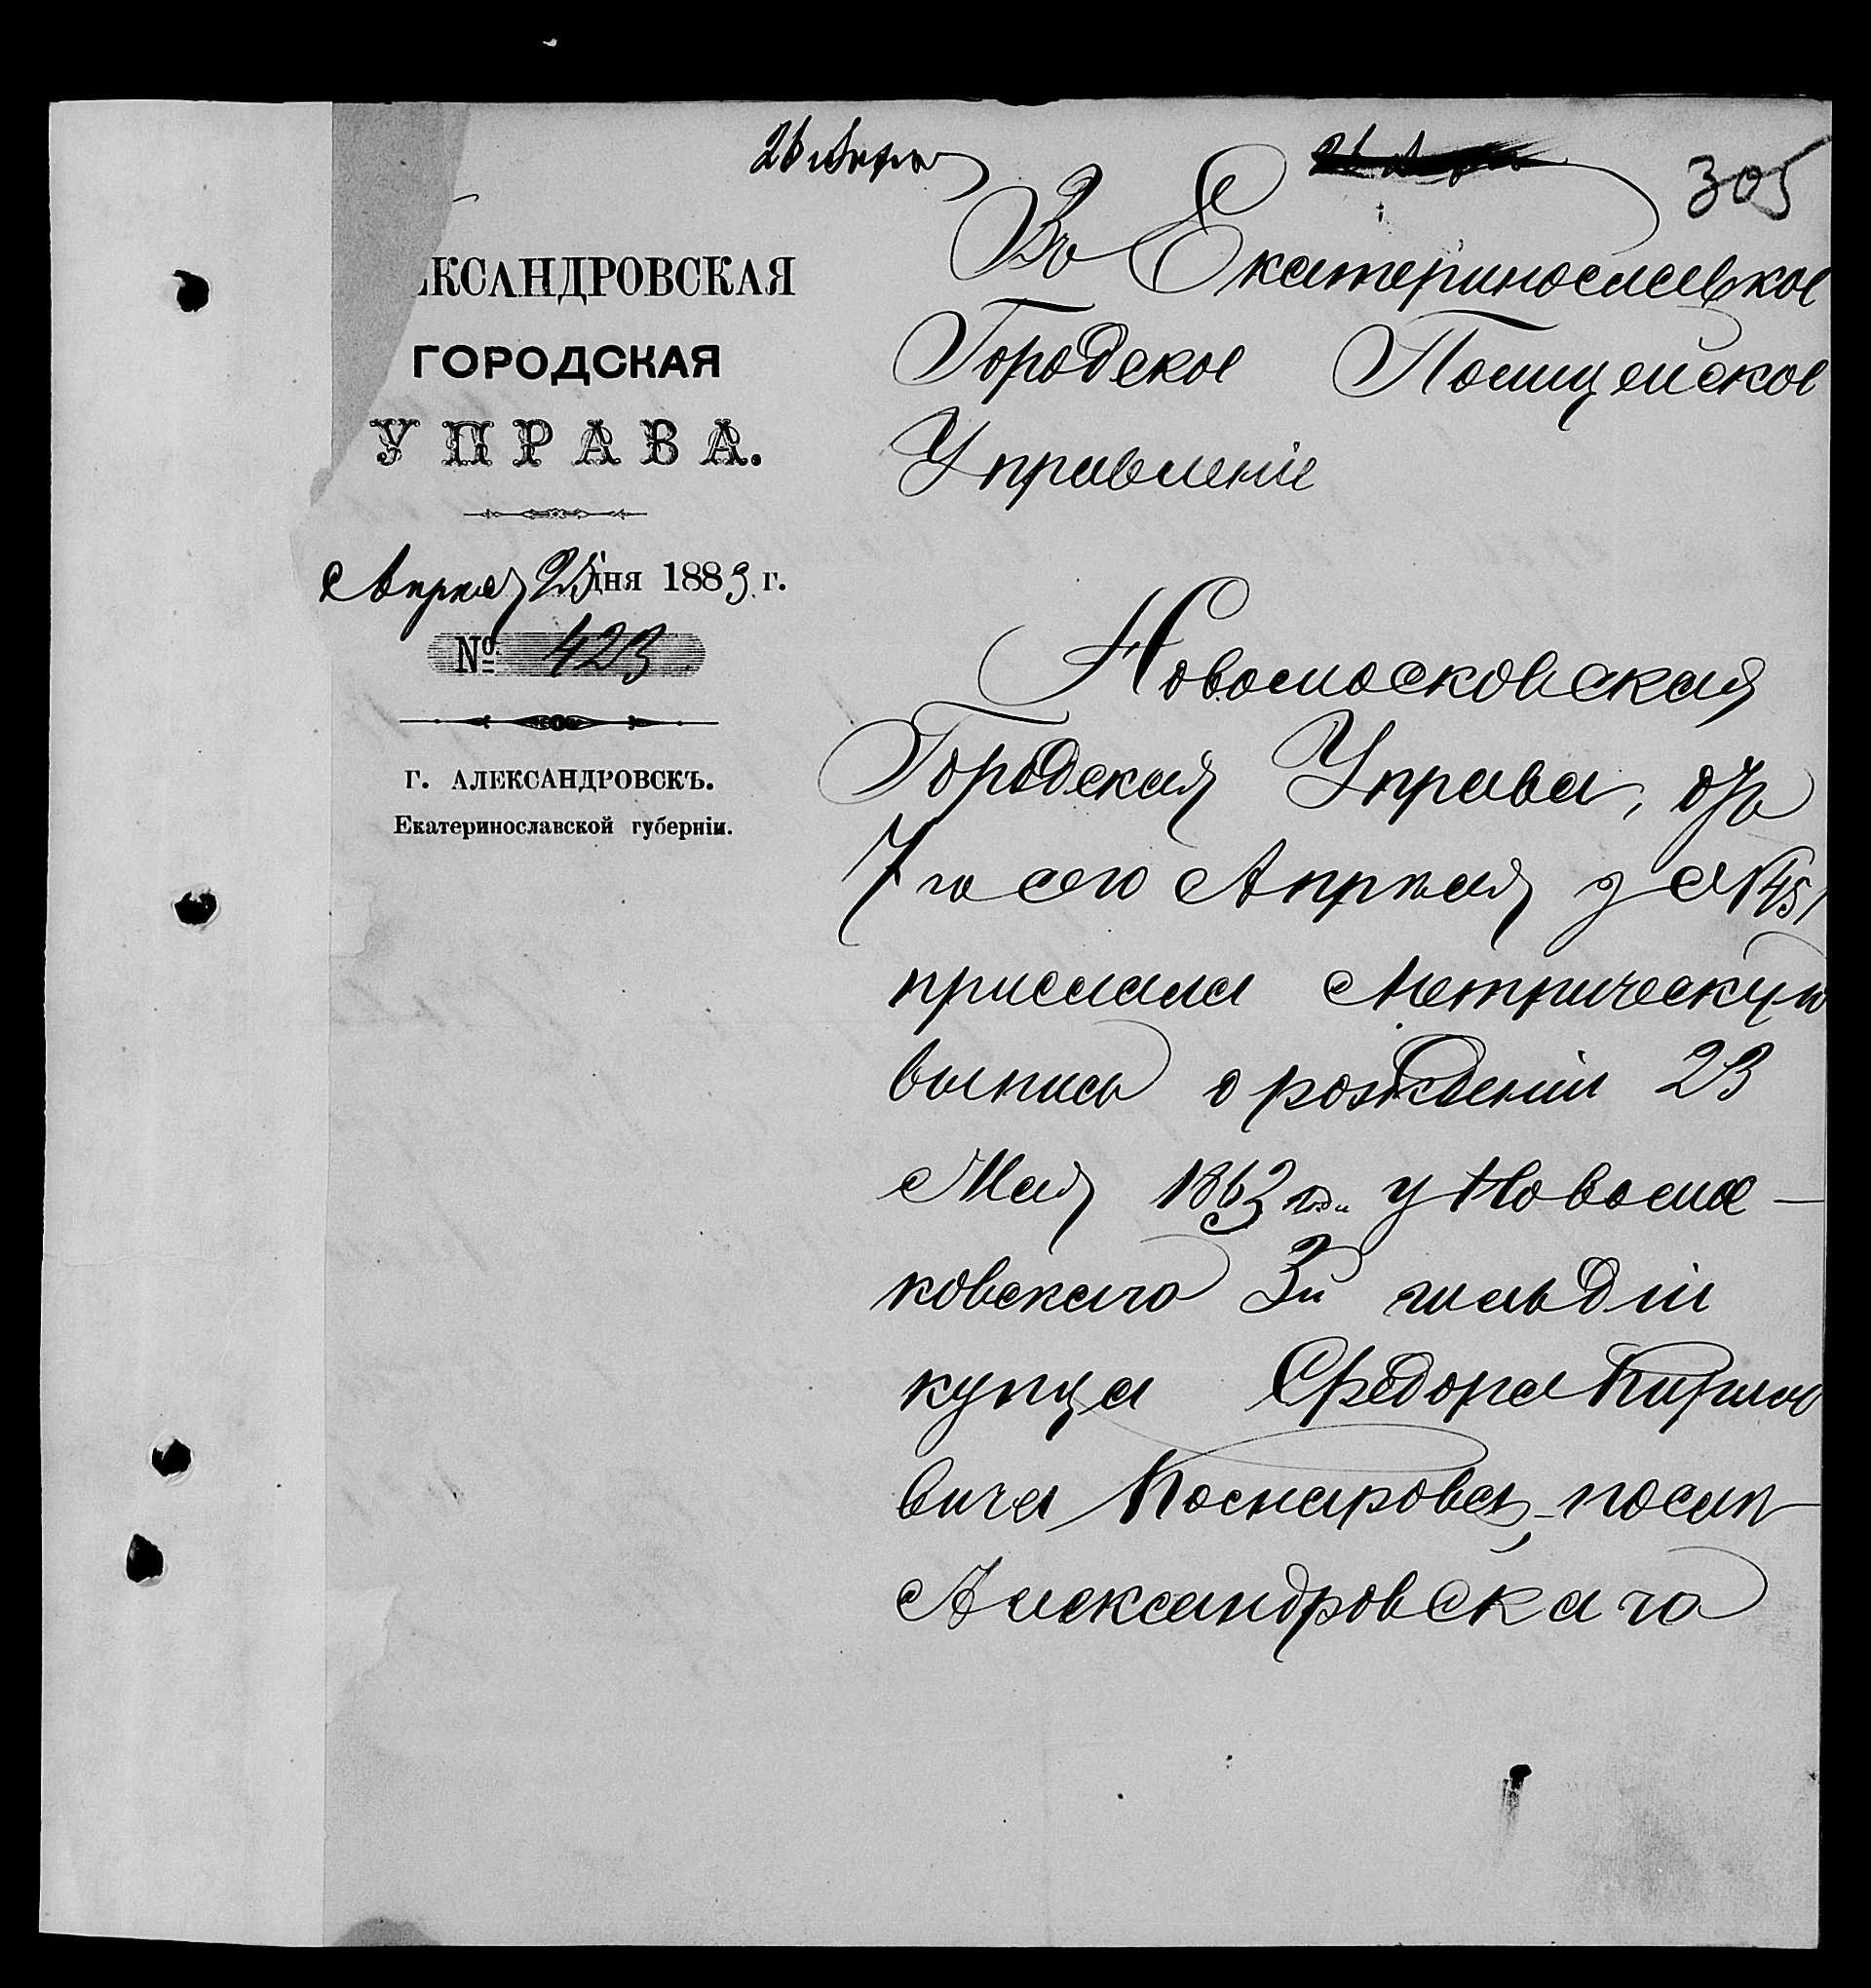 26 Апрѣля
305
КСАНДРОВСКАЯ
ГОРОДСКАЯ
УПРАВА.
Апрѣля 25 дня 1883 г.
№ 423
Г. АЛЕКСАНДРОВСКЪ.
Екатеринославской губерніи.
Въ Екатеринославское
Городское Полицейское
Управленіе
Новомосковская
Городская Управа, отъ
7го сего Апрѣля за №451
прислала Метрическую
выпись о рожденіи 23
Мая 1863 года у Новомос-
ковскаго 3й гильдіи
купца Федора Кирило
вича
Александровскаго